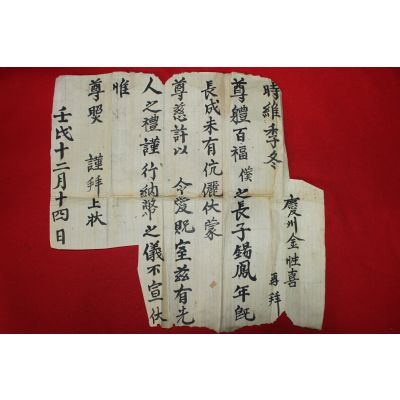 慶州金性喜 再拜
時維季冬
尊體百福 僕之長子錫鳳年旣
長成未有伉儷伏蒙
尊慈許以 令愛貺室玆有先
人之禮謹行納幣之儀不宣伏
惟
尊照 謹拜上狀
壬戌十二月十四日